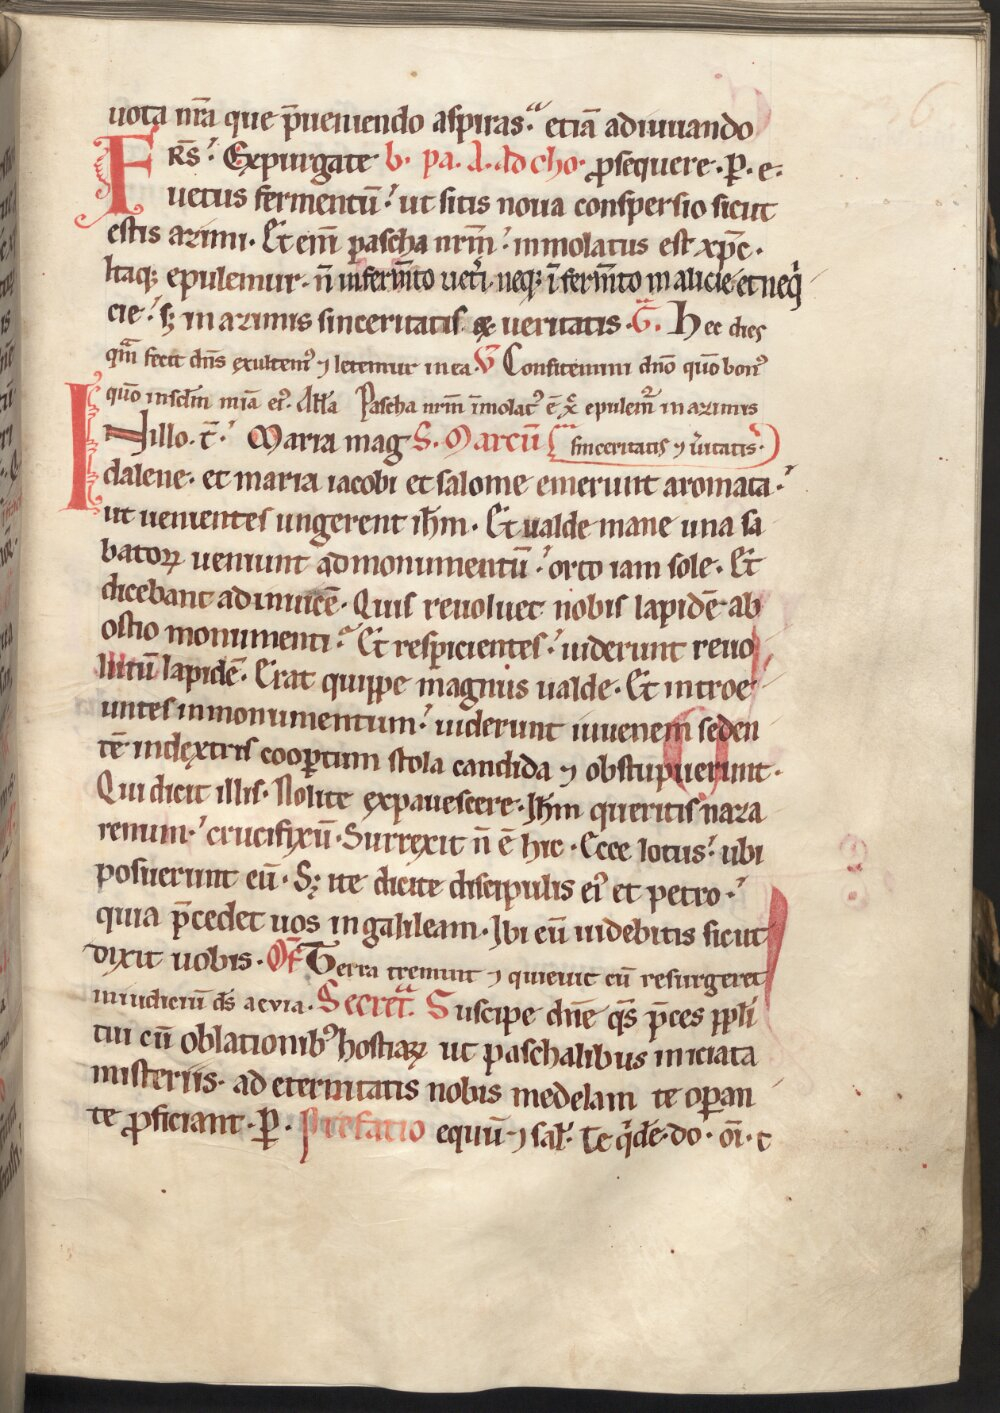 uota nr̄a que p̄ueniendo aspiras. etiā adiuuando
FRS̄. Expurgate b. pa. d. ad cho. ꝓsequere. P. e.
uetus fermentū. ut sitis noua conspersio sicut
estis azimi. Et eni̅ pascha nrm̄. inmolatus est xp̄c.
Itaq; epulemur. n̄ in fermt̄o uet̄i. neq; ī fermt̄o malicie et neq̇
cie. sꝫ in azimis sinceritatis & ueritatis. G̅. Hec dies
qm̄ fecit dn̄s exultem᷒ ⁊ letemur in ea. V̅ Confitemini dn̄o qūo bon᷒
qūo in sc̄lm mīa ei᷒. All̄a Pascha nrm̄ īmolat᷒ ē xp̄c epulem᷑ in azimis
INillo. t̄. Maria mag S. Marcū sinceritatis ⁊ ūitatis.
dalene. et maria iacobi et salome emerunt aromata.
ut uenientes ungerent ih̄m. Et ualde mane una sa
batoꝝ ueniunt ad monumentū. orto iam sole. Et
dicebant ad inuicē. Quis reuoluet nobis lapidē ab
ostio monumenti. Et respicientes. uiderunt reuo
lutū lapidē. Erat quippe magnus ualde. Et introe
untes in monumentum. uiderunt iuuenem seden
tē in dextris coop̄tum stola candida ⁊ obstupuerunt.
Qui dicit illis. Nolite expauescere. Ih̄m queritis naza
renum. crucifixū. Surrexit n̄ ē hic. Ecce lotus. ubi
posuerunt eū. Sꝫ ite dicite discipulis ei᷒ et petro.
quia p̄cedet uos in galileam. Ibi eū uidebitis sicut
dixit uobis. Of̄ Terra tremuit ⁊ quieuit cū resurgeret
in iudiciū ds̄ aevia. Secret̄. Suscipe dn̄e qs̄ p̄ces ppl̄i
tui cū oblationib᷒ hostiaꝝ ut paschalibus iniciata
misteriis. ad eternitatis nobis medelam te opan
te ꝓficiant. P̄. Prefatio equū ⁊ sal̄. Te q̇dē. do. oī. t